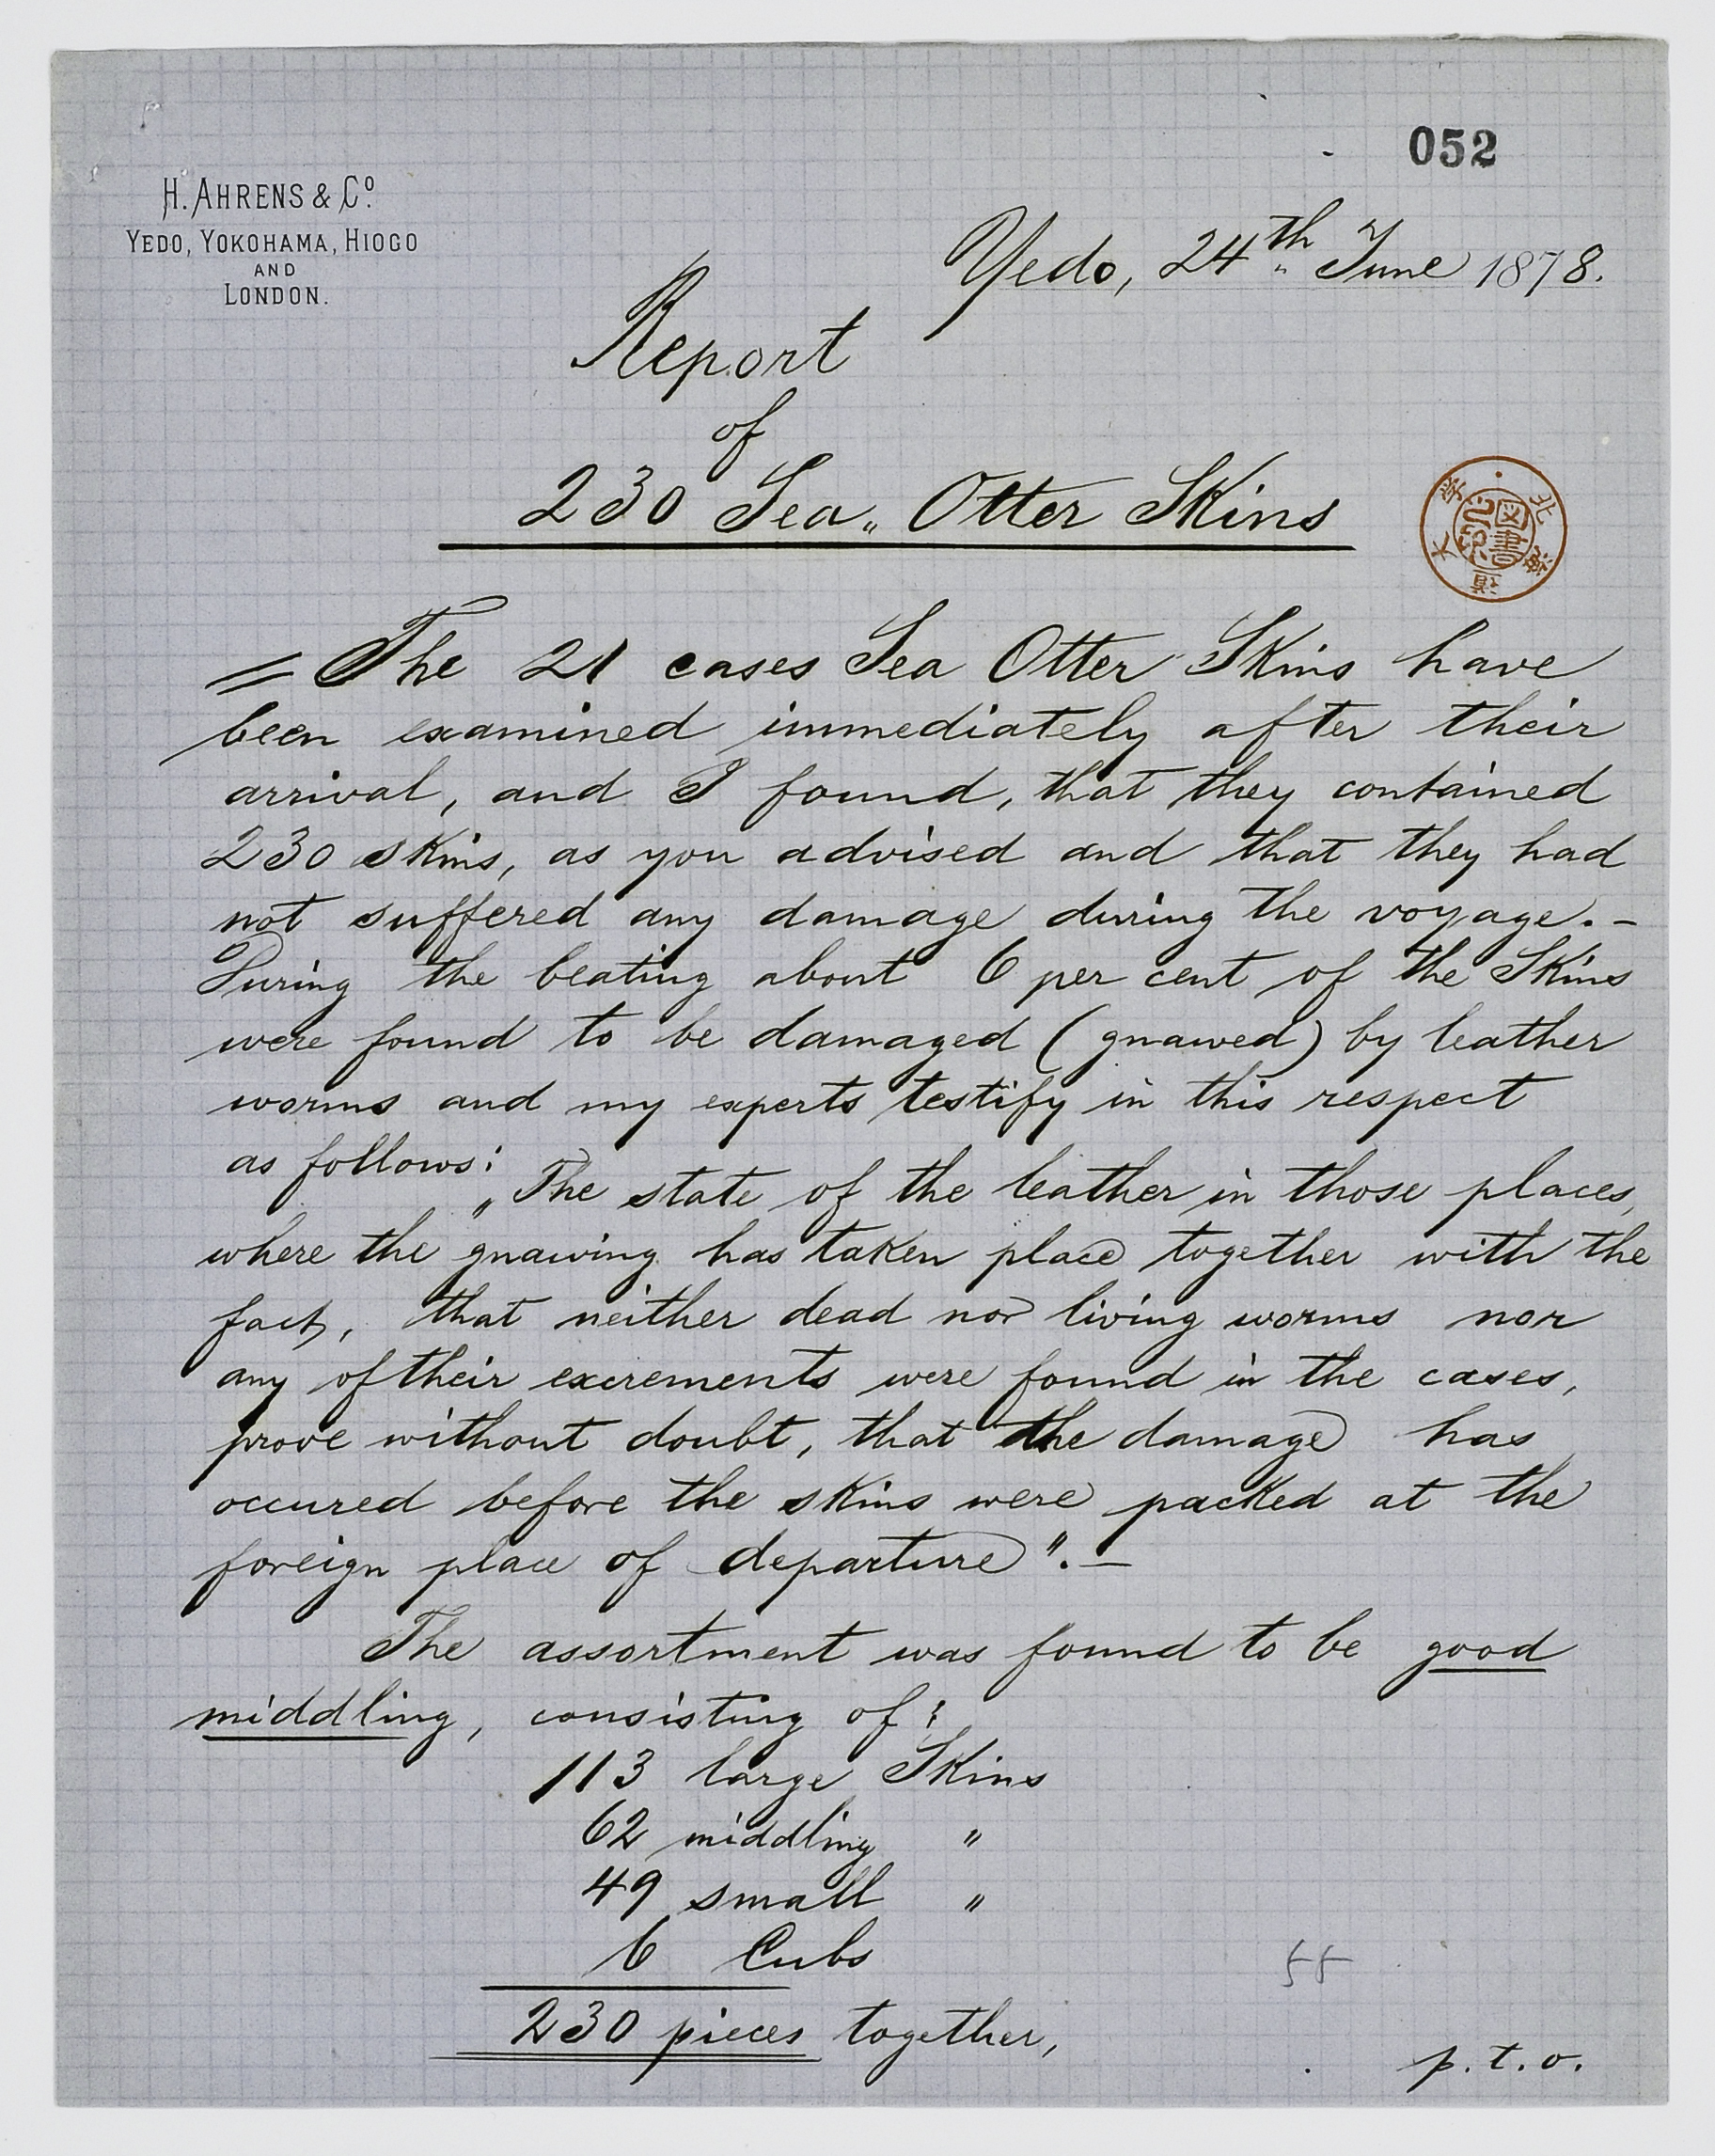 052
H. AHRENS & Co.
YEDO, YOKOHAMA, HIOGO
AND
LONDON.
Yedo, 24th June 1878.
Report
of
230 Sea„ Otter Skins
北海道大学
図書之印
= The 21 cases Sea Otter Skins have
been examined immediately after their
arrival, and I found, that they contained
230 skins, as you advised and that they had
not suffered any damage during the voyage. –
During the beating about 6 per cent of the Skins
were found to be damaged (gnawed) by leather
worms and my experts testify in this respect
as follows:
„The state of the leather in those places,
where the gnawing has taken place together with the
fact, that neither dead nor living worms nor
any of their excrements were found in the cases,
prove without doubt, that the damage has
occured before the skins were packed at the
foreign place of departure". –
The assortment was found to be good
middling, consisting of:
113 large Skins
62 middling "
49 small "
6 Cubs
230 pieces together,
55
p.t.o.